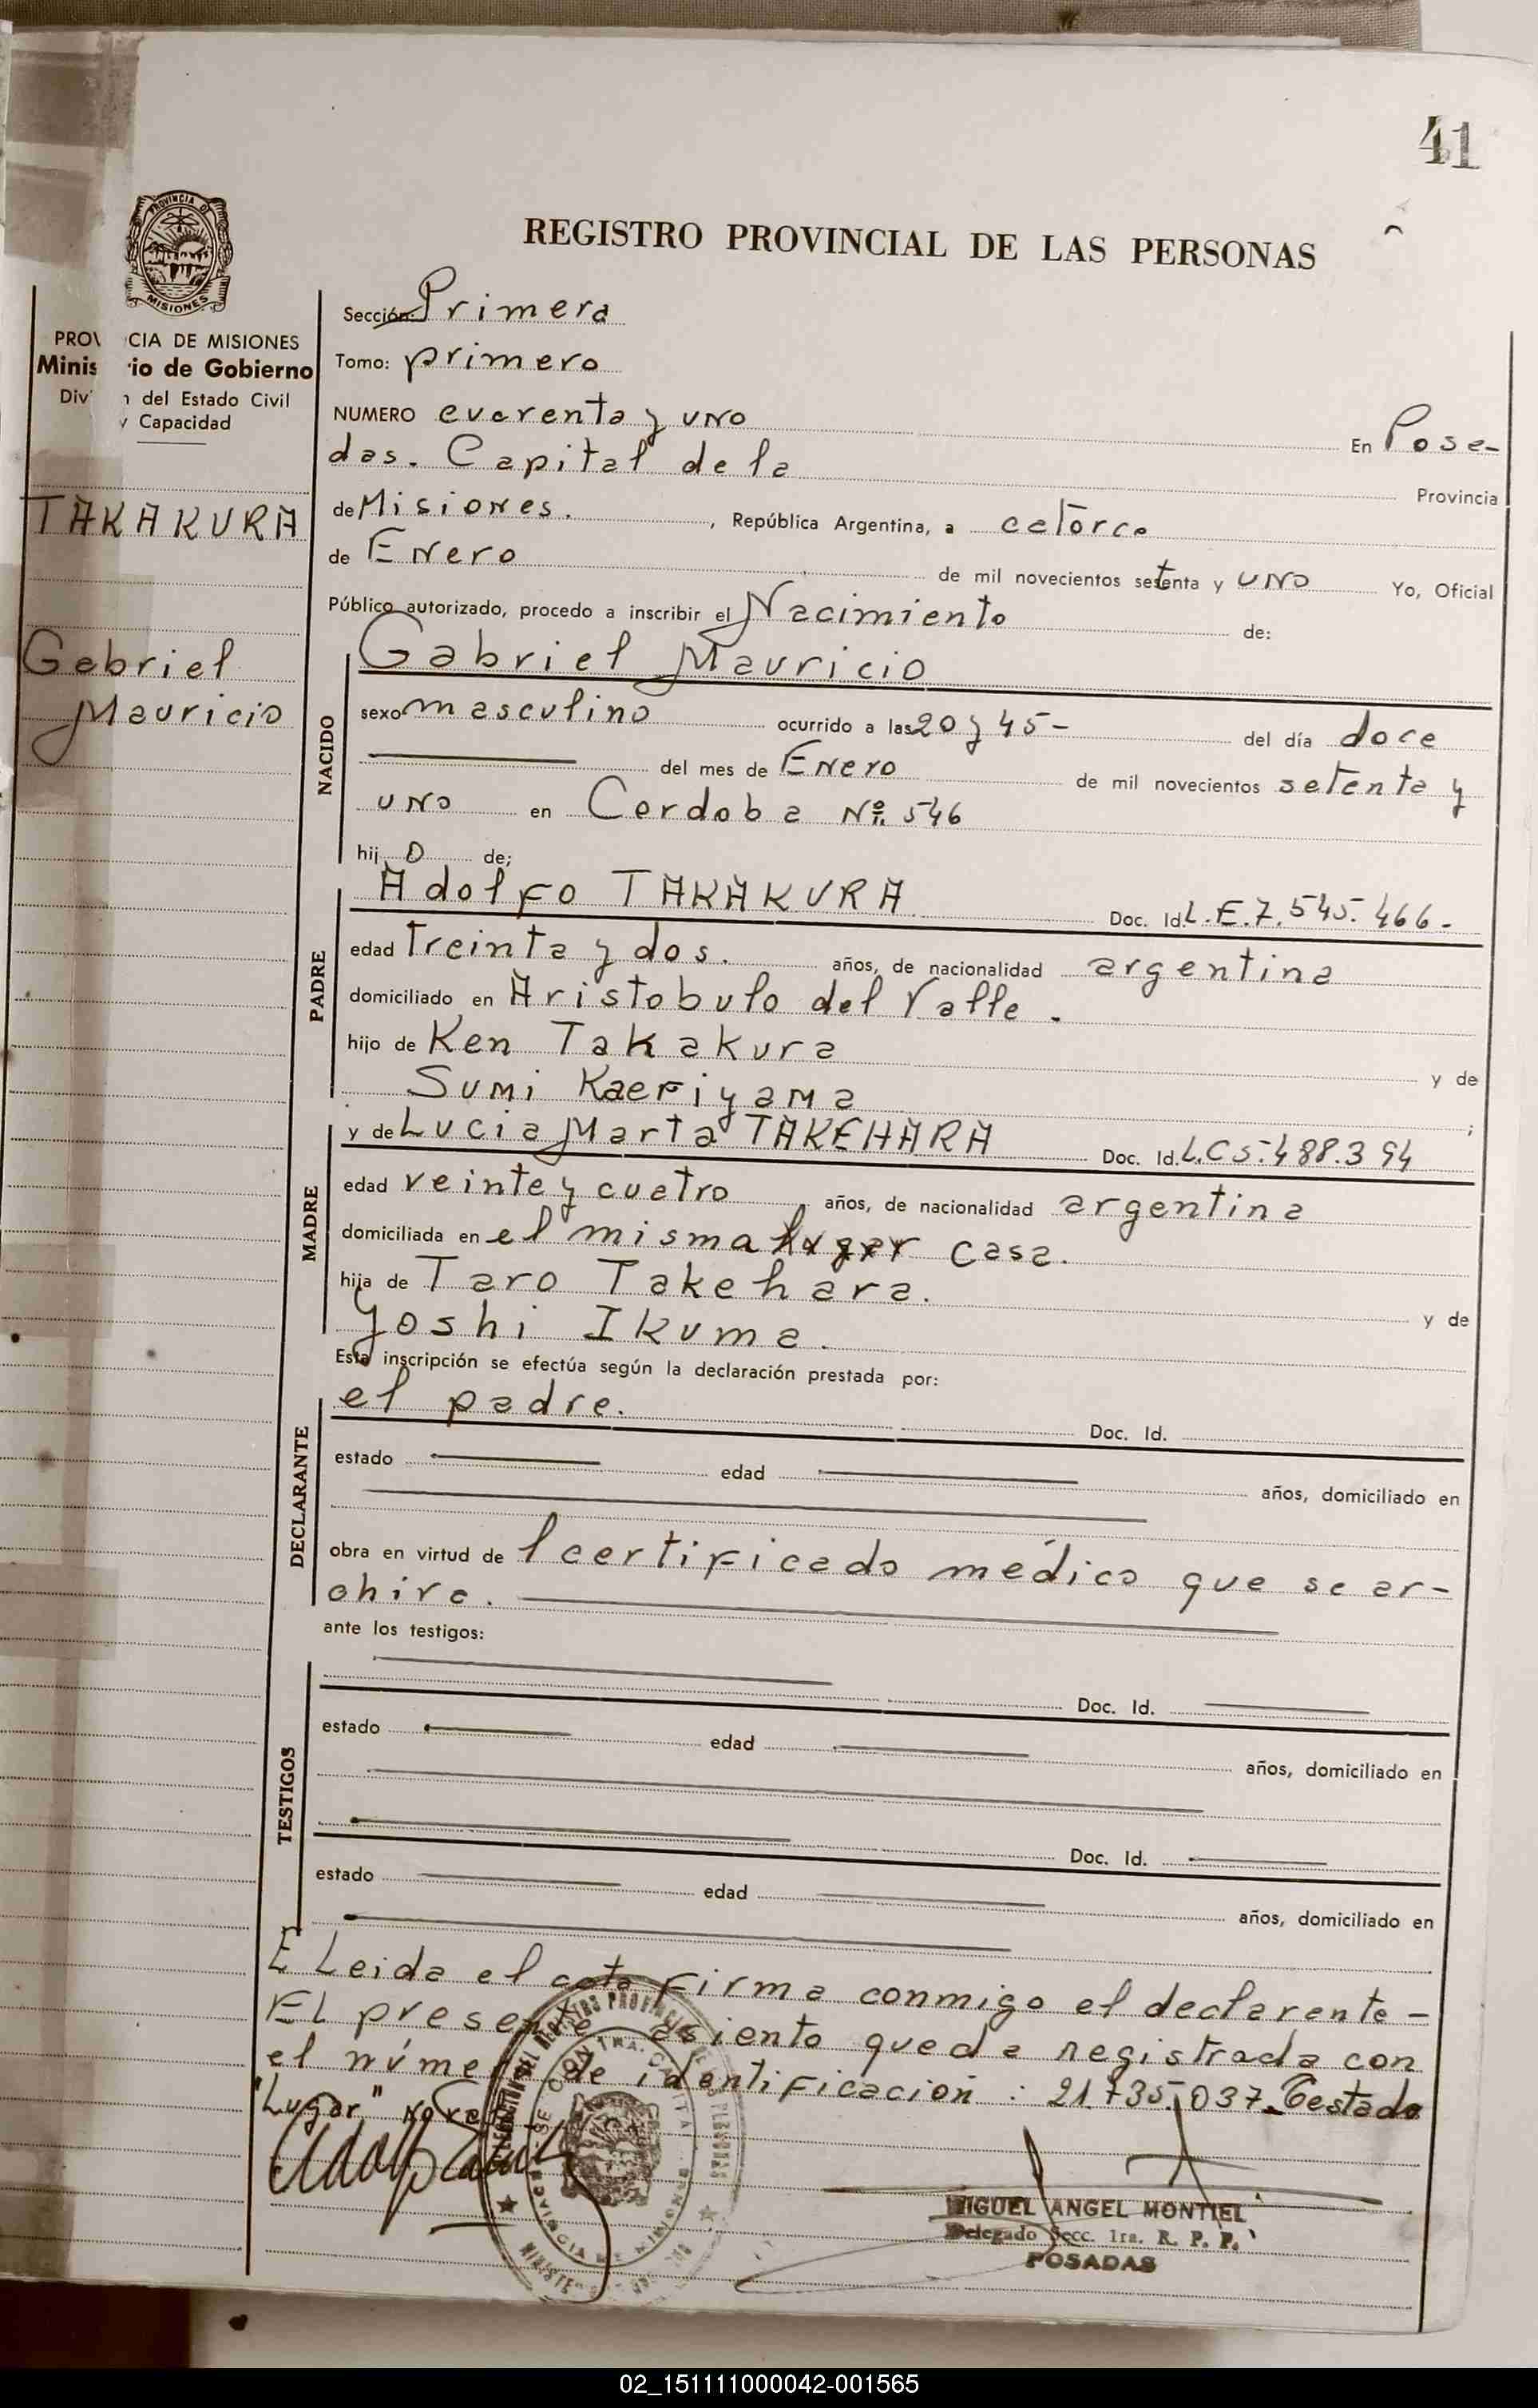 41
PROVINCIA DE
MISIONES
REGISTRO PROVINCIAL DE LAS PERSONAS
PROV CIA DE MISIONES
Minis rio de Gobierno
Div n del Estado Civil
y Capacidad
TAKAKURA
Gabriel
Mauricio
Sección: Primera
Tomo: primero
NUMERO cuarenta y uno En Posa-
das. Capital de la Provincia
de Misiones. , República Argentina, a catorce
de Enero de mil novecientos setenta y uno Yo, Oficial
Público autorizado, procedo a inscribir el Nacimiento de:
NACIDO
Gabriel Mauricio
sexo masculino ocurrido a las 20 y 45- del día doce
del mes de Enero de mil novecientos setenta y
uno en Cordoba Nº 546
hijo de;
PADRE
Adolfo TAKAKURA Doc. Id. L.E.7.545.466-
edad treinta y dos. años, de nacionalidad argentina
domiciliado en Aristobulo del Valle.
hijo de Ken Takakura y de
Sumi Kaeriyama ;
MADRE
y de Lucia Marta TAKEHARA Doc. Id. L.C 5.488.394
edad veinte y cuatro años, de nacionalidad argentina
domiciliada en el misma lugar casa.
hija de Taro Takehara. y de
Yoshi Ikuma.
Esta inscripción se efectúa según la declaración prestada por:
DECLARANTE
el padre. Doc. Id.
estado edad años, domiciliado en
obra en virtud de l certificado médico que se ar-
chiva.
ante los testigos:
TESTIGOS
Doc. Id.
estado edad años, domiciliado en
Doc. Id.
estado edad años, domiciliado en
E Leida el acta firma conmigo el declarante-
El presente asiento queda registrada con
el número de identificacion : 21.735.037. Testado
"Lugar" no vale
MIGUEL ANGEL MONTIEL
Delegado Secc. 1ra. R. P. P.
POSADAS
02_151111000042-001565